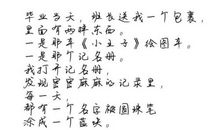 毕业当天，班长送我一个包裹，
里面有两样东西。
一是那本《小王子》绘图本。
一是那个记名册。
我打开记名册，
发现密密麻麻的记录里，
每一天，
都有一个名字被圆珠笔
涂成一个蓝块。